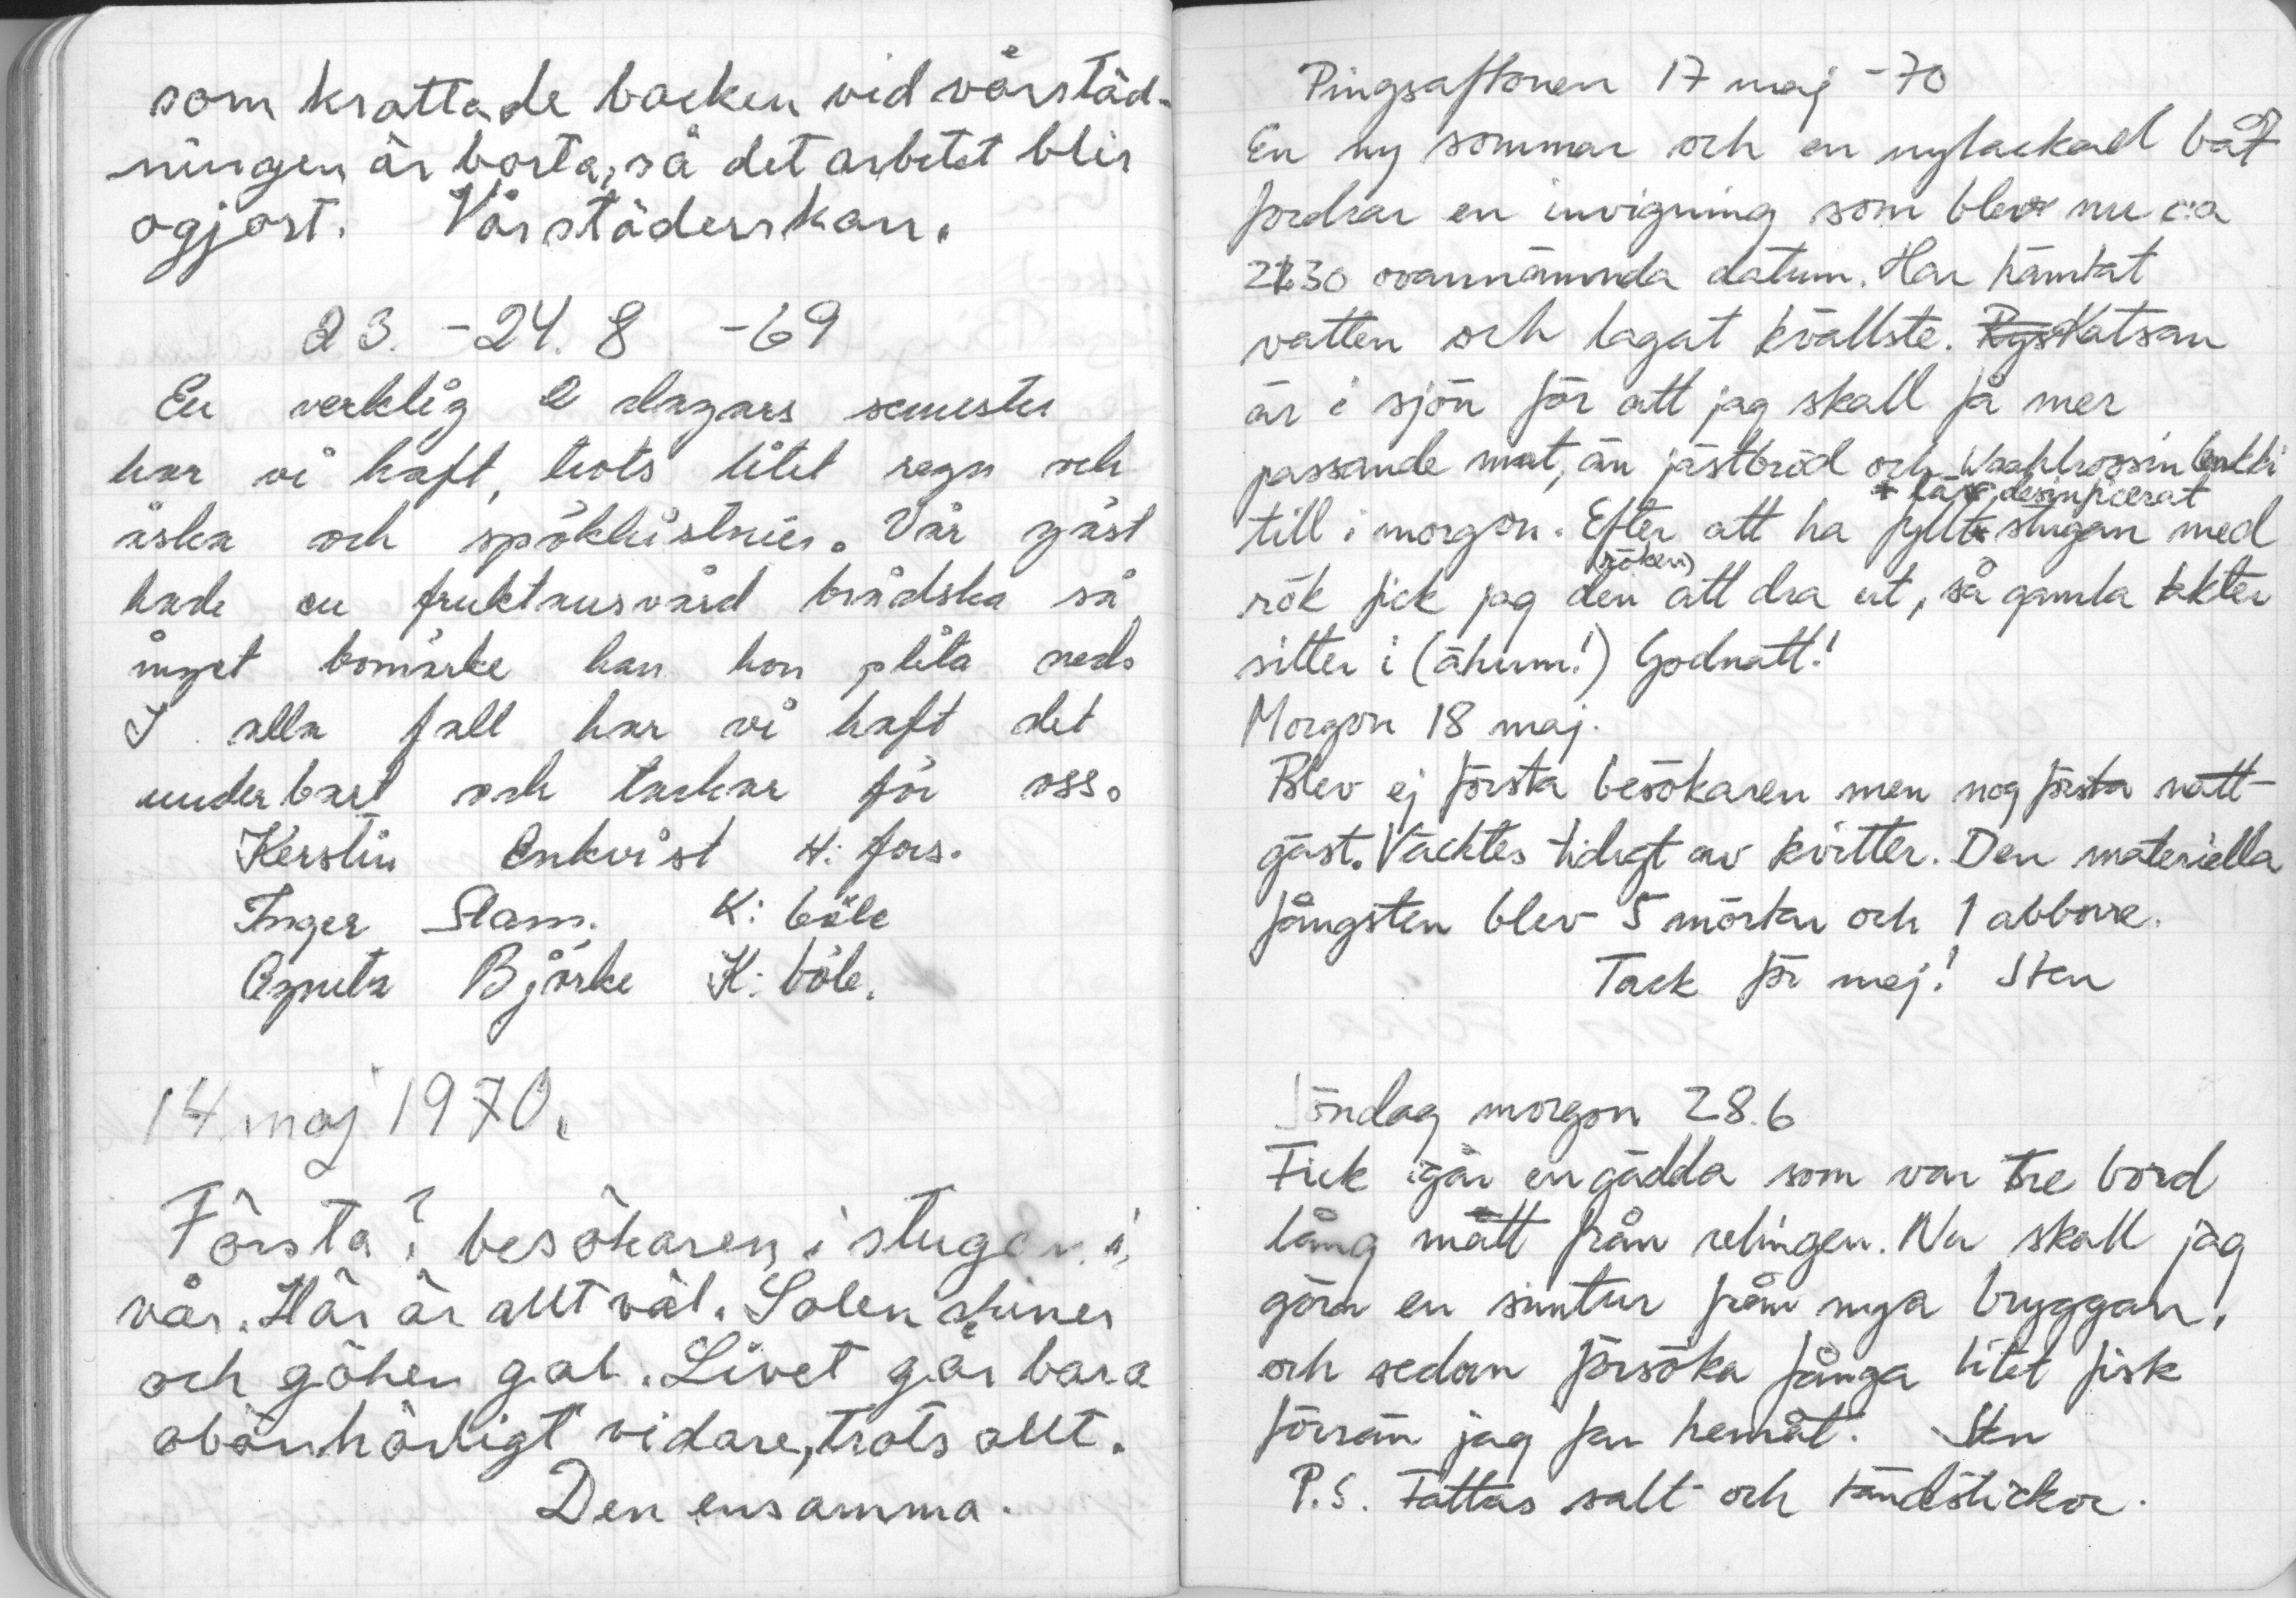 som krattade backen vid vårstäd-
ningen är borta, så det arbetet blir
ogjort. Vårstäderskan.
23. -24. 8 -69
En verklig 2 dagars semester
har vi haft, trots litet regn och
åska och spökhistorier. Vår gäst
hade en fruktansvärd brådska så
inget bomärke han hon plita ned.
I alla fall har vi haft det
underbart och tackar för oss.
Kerstin Enkvist H:fors.
Inger Slam. K:böle
Agneta Björke K:böle.
14 maj 1970.
Första? besökaren i stugan i
vår. Här är allt väl. Solen skiner
och göken gal. Livet går bara
obönhörligt vidare, trots allt.
Den ensamma.
Pingsaftonen 17 maj -70
En ny sommar och en nylackad båt
fordrar en invigning som blev nu ca
2130 ovannämnda datum. Har hämtat
vatten och lagat kvällste. Katsan
är i sjön för att jag skall få mer
passande mat, än jästbröd och
desinficerat
till i morgon. Efter att ha fyllt stugan med
(röken)
rök fick jag den att dra ut, så gamla takter
sitter i (ähum!) Godnatt!
Morgon 18 maj.
Blev ej första besökaren men nog första natt-
gäst. Väcktes tidigt av kvitter. Den materiella
fångsten blev 5 mörtar och 1 abborre.
Tack för mej! Sten
Söndag morgon 28.6
Fick igår en gädda som var tre bord
lång mätt från relingen. Nu skall jag
göra en simtur från nya bryggan,
och sedan försöka fånga litet fisk
förrän jag far hemåt. Sten
P.S. Fattas salt och tändstickor.